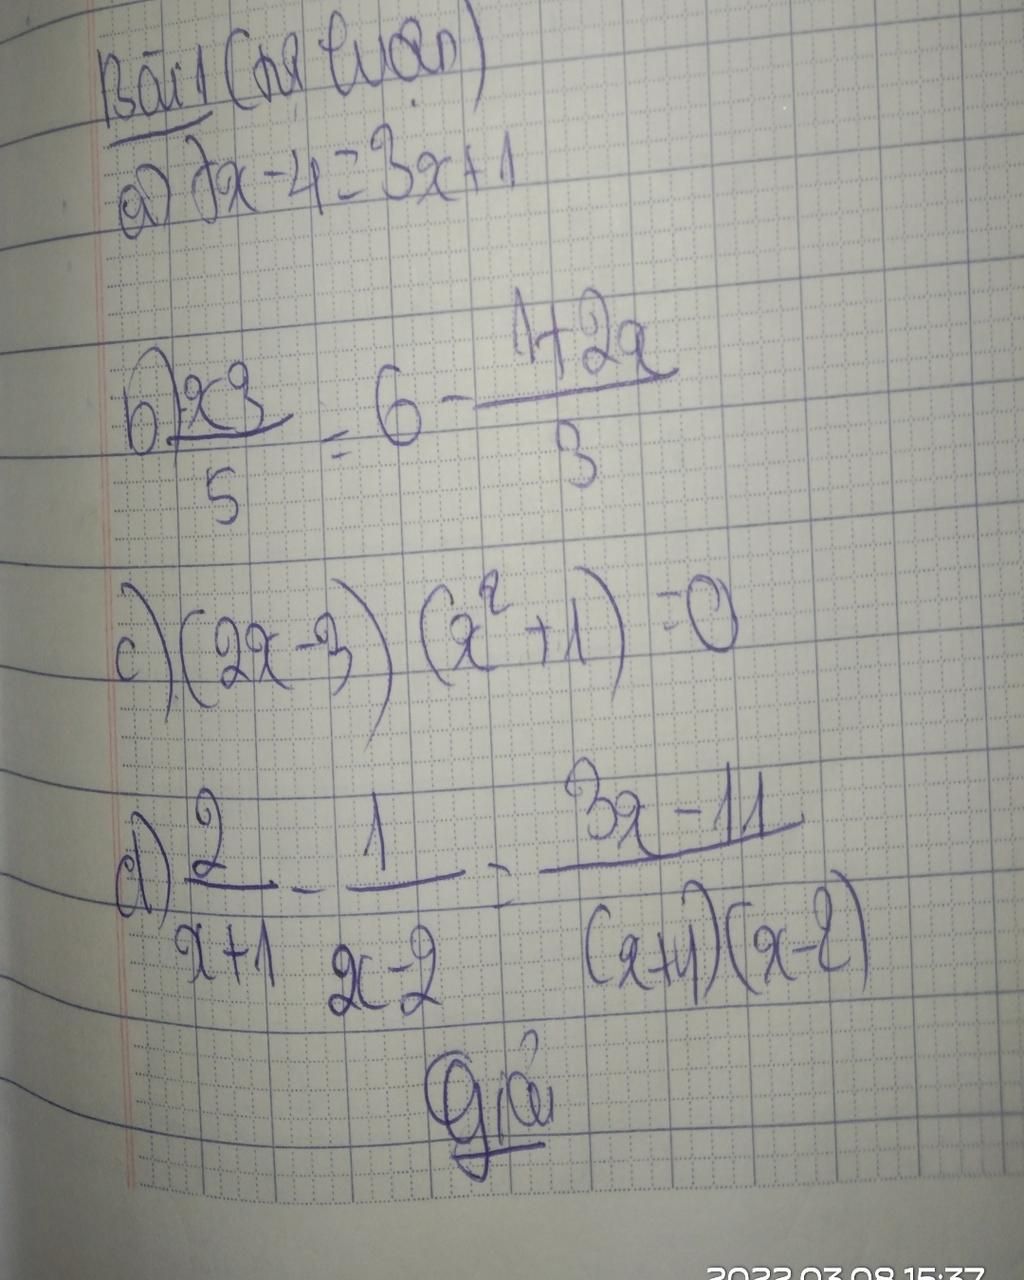 Bài 1 (tự luận)
a) 7x-4=3x+1
b) x-3/5 = 6 - 1+2x/3
c) (2x-3) (x²+1) =0
d) 2/x+1 - 1/x-2 = 3x-11/(x+1)(x-2)
Giải
2022.03.08 15:37